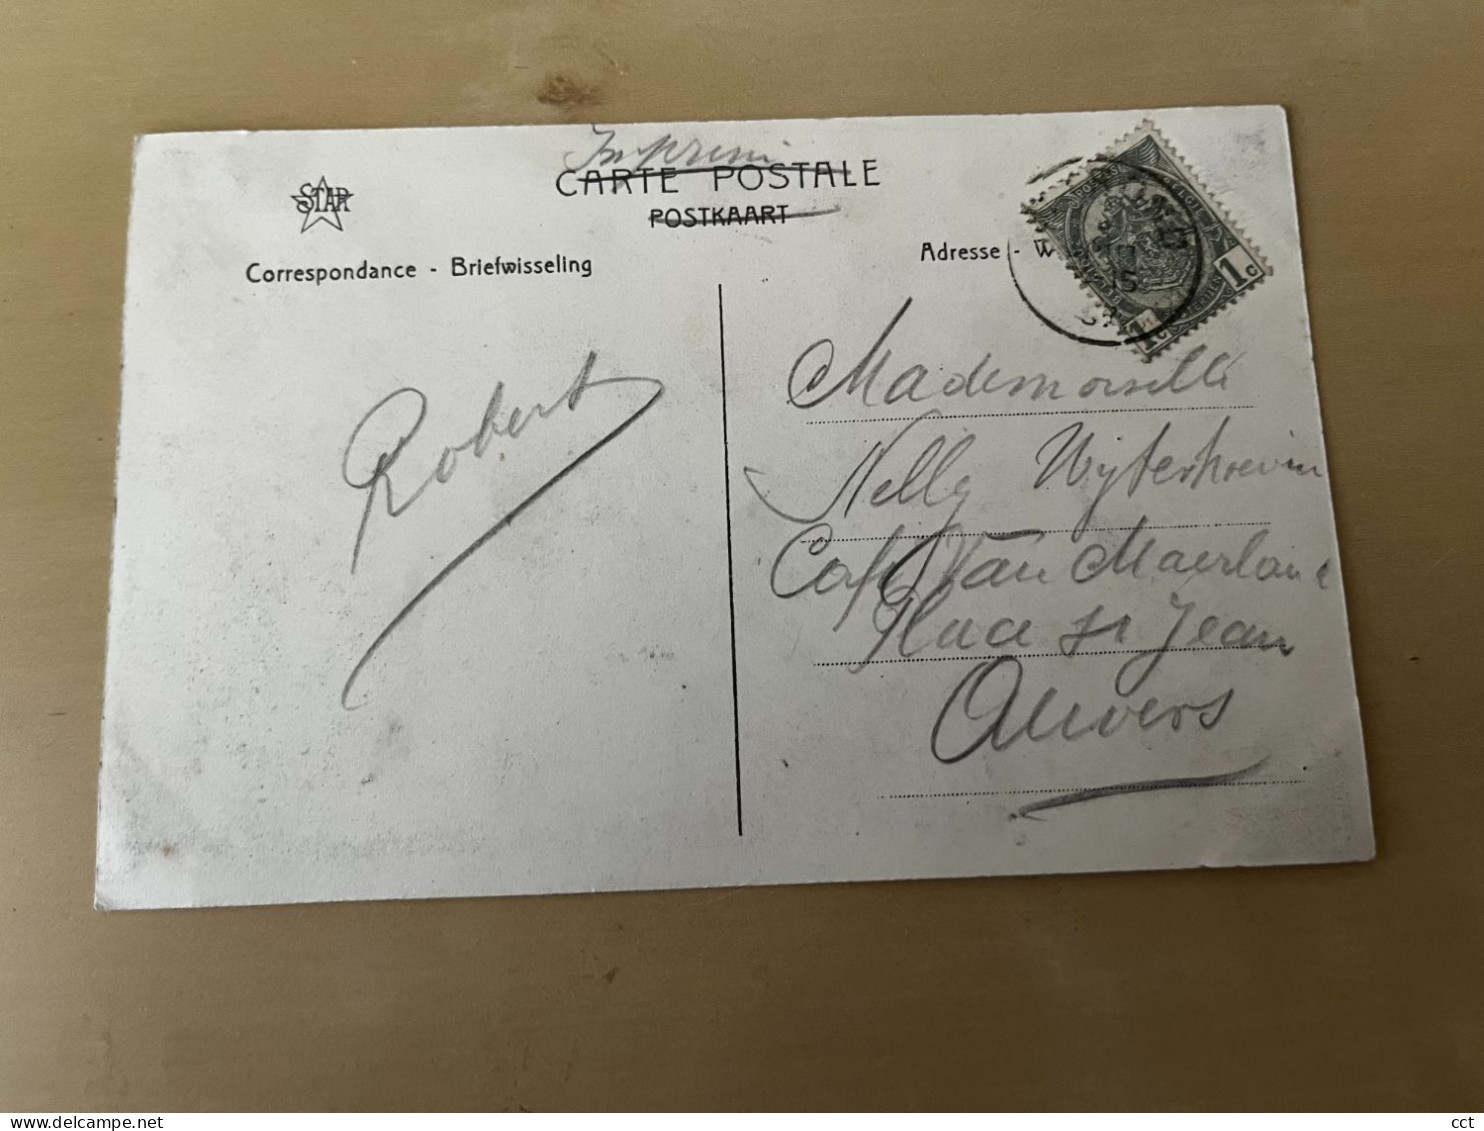 Imprimé
STAR
CARTE POSTALE
POSTKAART
Correspondance - Briefwisseling
Adresse - W
1c
1c
Robert
Mademoiselle
Nelly
Café Van Maerlant
Place St Jean
Anvers
cct